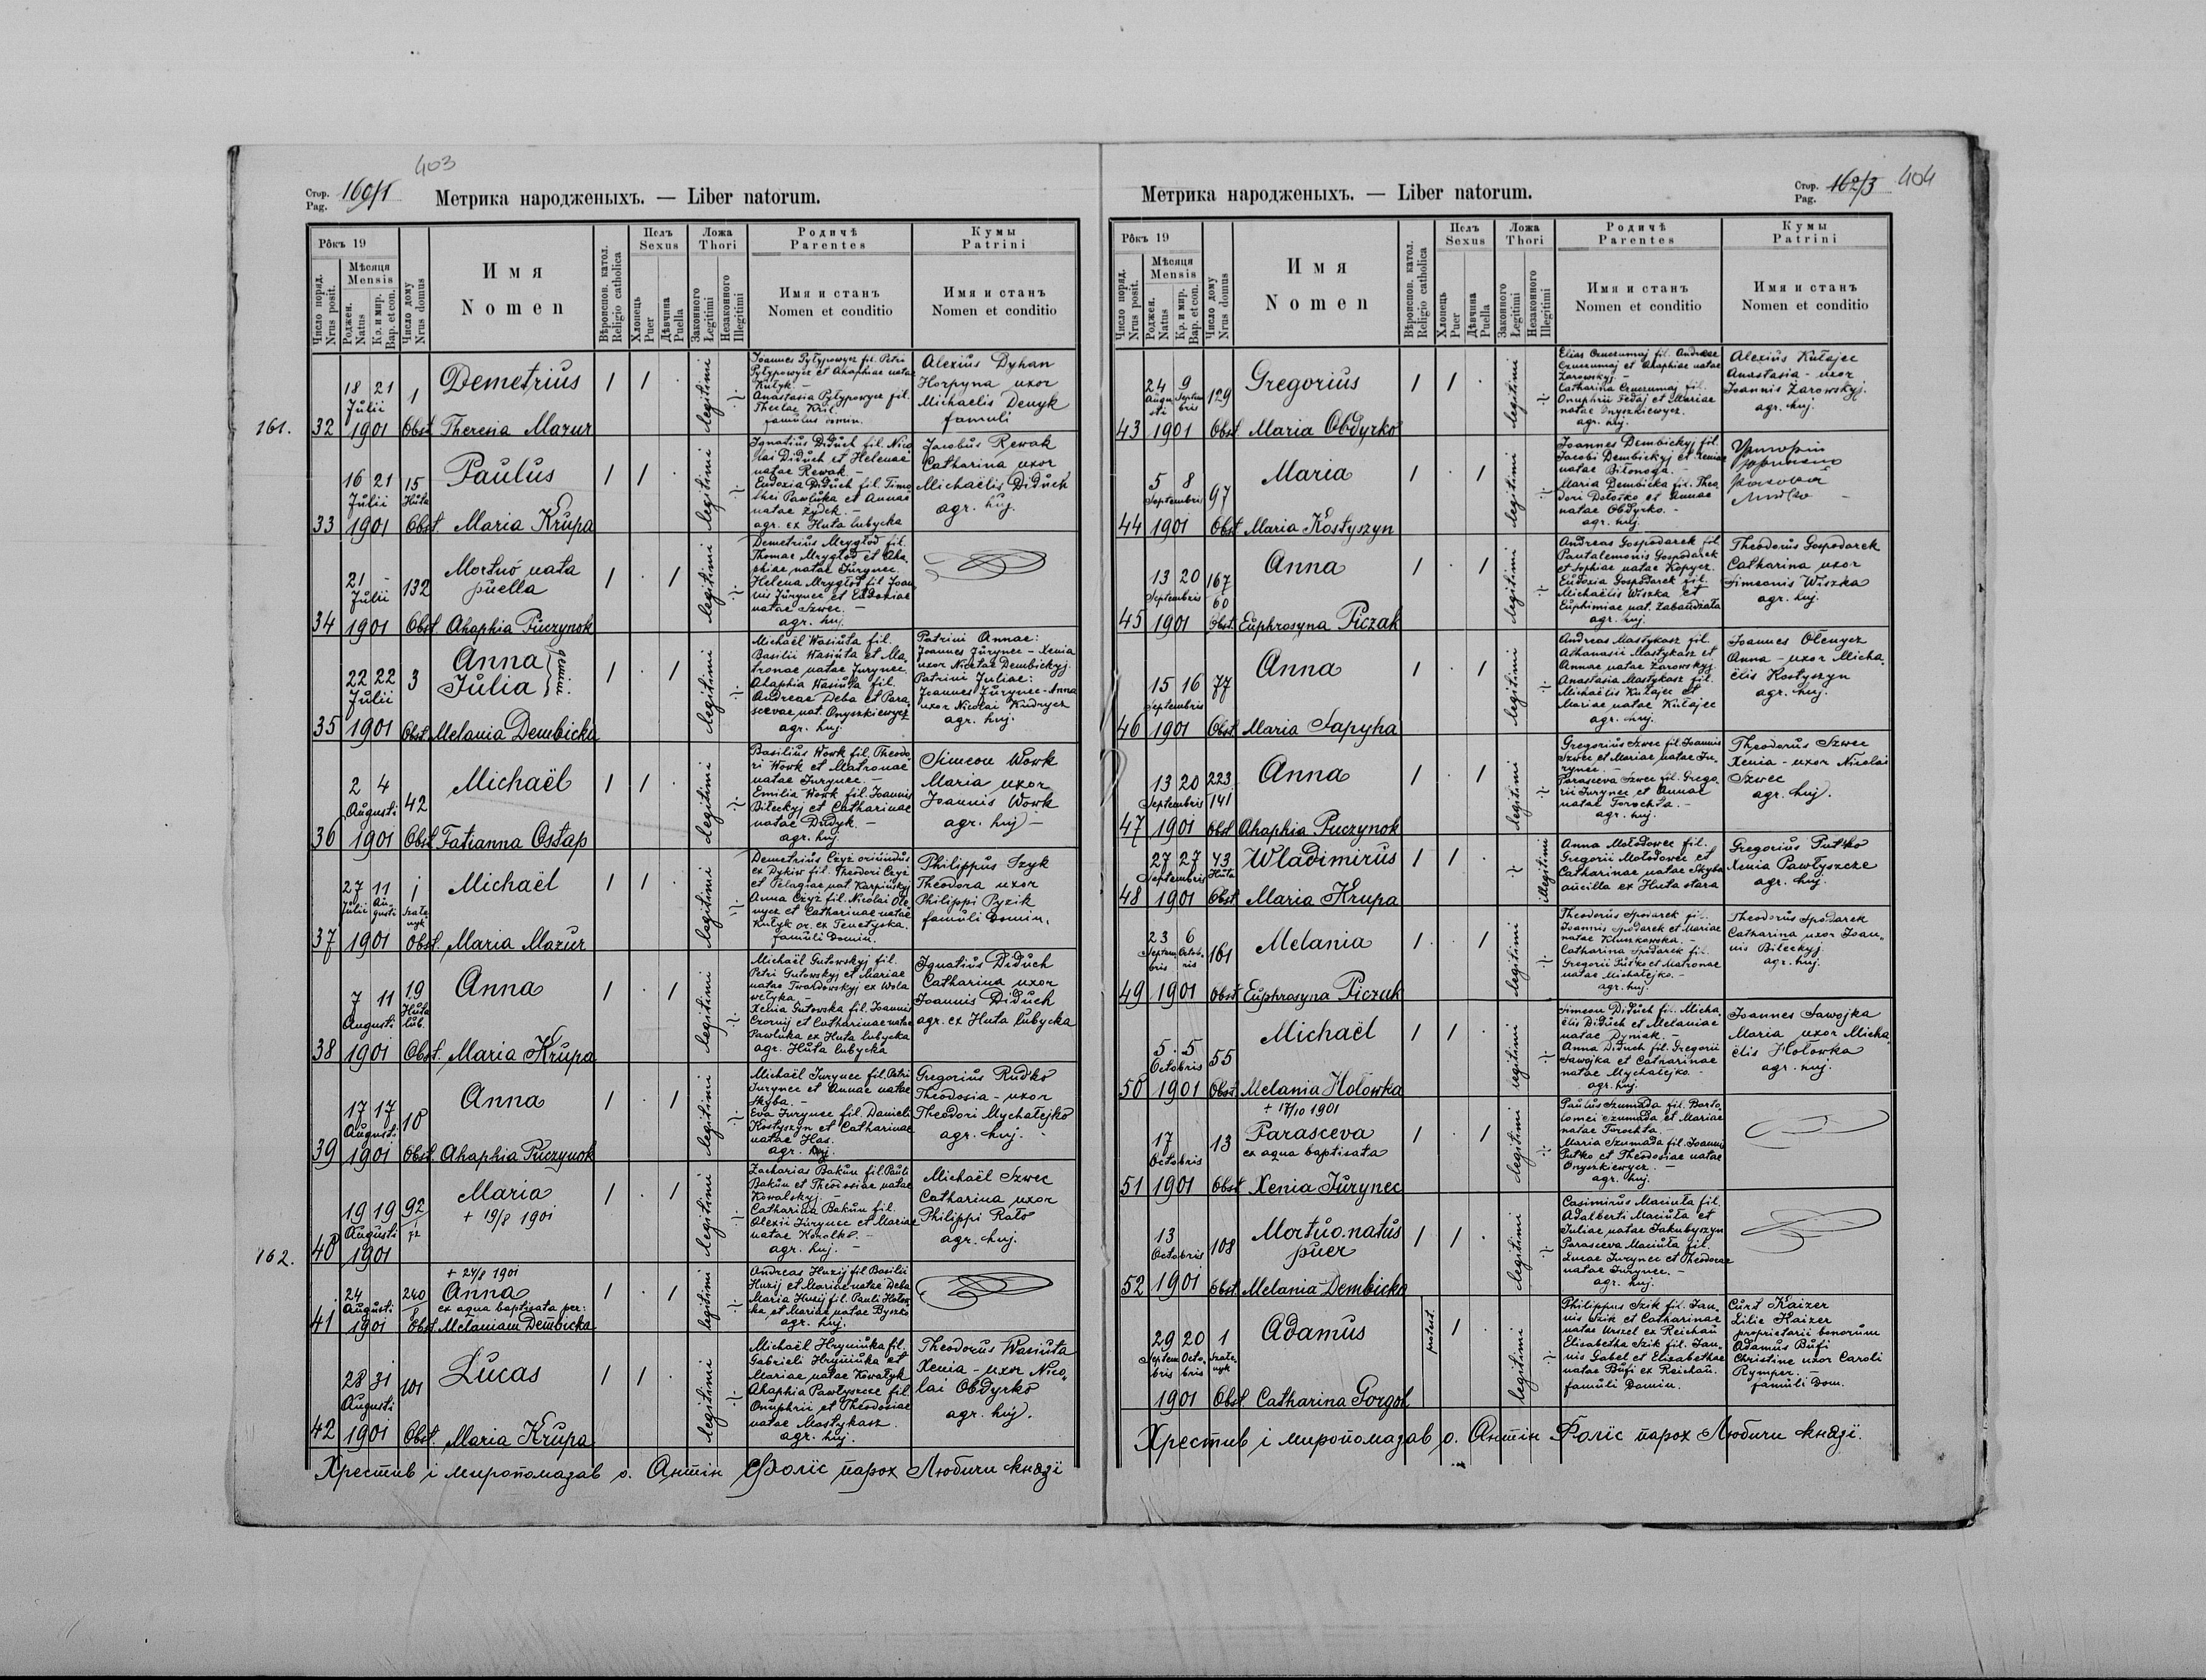 403
Стор.
Pag.
160/1
Метрика народженыхъ. — Liber natorum.
Рôкъ 19
Число поряд.
Nrus posit.
Мѣсяця
Mensis
Роджен.
Natus
Кр. и мир.
Bap. et con.
Число дому
Nrus domus
Имя
Nomen
Вѣроиспов. катол.
Religio catholica
Пслъ
Sexus
Хлопець
Puer
Дѣвчина
Puella
Ложа
Thori
Законного
Legitimi
Незаконного
Illegitimi
Родичѣ
Parentes
Имя и станъ
Nomen et conditio
Кумы
Patrini
Имя и станъ
Nomen et conditio
161.
32
18 21
Julii
1901
1
Demetrius
Obst. Theresia Mazur
1 1 .
legitimi
Joannes Pyłypowycz fil. Petri
Pyłypowycz et Ahaphiae natae
Kułyk. –
Anastasia Pyłypowycz fil.
Theclae Krul.
famulus domin.
Alexius Dyhan
Horpyna uxor
Michaelis Denyk
famuli
33
16 21
Julii
1901
15
Huta
Paulus
Obst. Maria Krupa
1 1 .
legitimi
Ignatius Diduch fil. Nico
lai Diduch et Helenae
natae Rewak –
Eudoxia Diduch fil. Timo
thei Pawluka et Annae
natae Zydek. –
agr. ex Huta lubycka
Jacobus Rewak
Catharina uxor
Michaëlis Diduch
agr. huj.
34
21 –
Julii
1901
132
Mortuo nata
puella
Obst. Ahaphia Puczynok
1 . 1
legitimi
Demetrius Mrygłod fil.
Thomae Mrygłod et Aha
phiae natae Jurynec.
Helena Mrygłod fil Joan
nis Jurynec et Eudoxiae
natae Szwec. –
agr. huj.
35
22 22
Julii
1901
3
Anna
Julia
gemini.
Obst. Melania Dembicka
1 . 1
legitimi
Michaël Wasiuta fil.
Basilii Wasiuta et Ma
tronae natae Jurynec.
Ahaphia Wasiuta fil.
Andreae Deba et Para
scevae nat. Onyszkiewycz
agr. huj.
Patrini Annae:
Joannes Jurynec – Xenia
uxor Nicetae Dembickyj.
Patrini Juliae:
Joannes Jurynec – Anna
uxor Nicolai Kudrycz
agr. huj.
36
2 4
Augusti
1901
42
Michaël
Obst. Tatianna Ostap
1 1 .
legitimi
Basilius Wowk fil. Theodo
ri Wowk et Matronae
natae Jurynec. –
Emilia Wowk fil. Joannis
Bileckyj et Catharinae
natae Dudyk. –
agr. huj
Simeon Wowk
Maria uxor
Joannis Wowk
agr. huj –
37
27 11
Julii Au
gusti
1901
1
Szałe
nyk
Michaël
Obst. Maria Mazur
1 1 .
legitimi
Demetrius Czyż oriundus
ex Dykiw fil. Theodori Czyż
et Pelagiae nat. Karpinskyj
Anna Czyż fil. Nicolai Ole
nycz et Catharinae natae
Kułyk or. ex Tenetyska.
famuli Domin.
Philippus Szyk
Theodora uxor
Philippi Pyzik
famuli Domin.
38
7 11
Augusti
1901
19
Huta
lub.
Anna
Obst. Maria Krupa
1 . 1
legitimi
Michaël Gutowskyj fil.
Petri Gutowskyj et Mariae
natae Twardowskyj ex Wola
wełyka –
Xenia Gutowska fil. Joannis
Czornij et Catharinae natae
Pawluka ex Huta lubycka
agr. Huta lubycka
Ignatius Diduch
Catharina uxor
Joannis Diduch
agr. ex Huta lubycka
39
17 17
Augusti
1901
18
Anna
Obst. Ahaphia Puczynok
1 . 1
legitimi
Michaël Jurynec fil. Petri
Jurynec et Annae natae
Skyba. –
Eva Jurynec fil. Danieli
Kostyszyn et Catharinae
natae Has.
agr. huj.
Gregorius Rudko
Theodosia – uxor
Theodori Mychałejko
agr. huj. –
162.
40
19 19
Augusti
1901
92
Maria
+ 19/8 1901
1 . 1
legitimi
Zacharias Bakun fil. Pauli
Bakun et Theodosiae natae
Kowalskyj. –
Catharina Bakun fil.
Olexii Jurynec et Mariae
natae Kowalko. –
agr. huj. –
Michaël Szwec
Catharina uxor
Philippi Rato
agr. huj.
41
24
Augusti
1901
240
8
+ 24/8 1901
Anna
ex aqua baptisata per:
Obst. Melaniam Dembicka
1 . 1
legitimi
Andreas Huzij fil Basilii
Huzij et Mariae natae Deba
Maria Huzij fil. Pauli Hołow
ka et Mariae natae Byszko
agr. huj.
42
28 31
Augusti
1901
101
Lucas
Obst. Maria Krupa
1 1 .
legitimi
Michaël Hryniuka fil.
Gabrieli Hryniuka et
Mariae natae Kowałyk
Ahaphia Pawłyszcze fil.
Onuphrii et Theodosiae
natae Mastykasz.
agr. huj.
Theodorus Wasiuta
Xenia – uxor Nico
lai Obdyrko
agr. huj.
Хрестив і миропомазав о. Антін Фоліс парох Любичи князї
Метрика народженыхъ. — Liber natorum.
Стор.
Pag.
162/3
404
Рôкъ 19
Число поряд.
Nrus posit.
Мѣсяця
Mensis
Роджен.
Natus
Кр. и мир.
Bap. et con.
Число дому
Nrus domus
Имя
Nomen
Вѣроиспов. катол.
Religio catholica
Пслъ
Sexus
Хлопець
Puer
Дѣвчина
Puella
Ложа
Thori
Законного
Legitimi
Незаконного
Illegitimi
Родичѣ
Parentes
Имя и станъ
Nomen et conditio
Кумы
Patrini
Имя и станъ
Nomen et conditio
43
24 9
Augu Septem
sti bris
1901
129
Gregorius
Obst Maria Obdyrko
1 1 .
legitimi
Elias Czuczumaj fil. Andreae
Czuczumaj et Ahaphiae natae
Żarowskyj –
Catharina Czuczumaj fil.
Onuphrii Fedaj et Mariae
natae Onyszkiewycz.
agr. huj.
Alexius Kułajec
Anastasia – uxor
Joannis Żarowskyj.
agr. huj.
44
5 8
Septembris
1901
97
Maria
Obst Maria Kostyszyn
1 . 1
legitimi
Joannes Dembickyj fil.
Jacobi Dembickyj et Xeniae
natae Biłonoga. –
Maria Dembicka fil. Theo
dori Dolosko et Annae
natae Obdyrko. –
agr. huj.
45
13 20
Septembris
1901
167
60
Anna
Obst. Euphrosyna Piczak
1 . 1
legitimi
Andreas Gospodarek fil
Pantalemonis Gospodarek
et Sophiae natae Kopycz.
Eudoxia Gospodarek fil.
Michaëlis Wiszka et
Euphimiae nat. Zabaudziała
agr. huj.
Theodorus Gospodarek
Catharina uxor
Simeonis Wiszka
agr. huj.
46
15 16
Septembris
1901
77
Anna
Obst Maria Sapyha
1 . 1
legitimi
Andreas Mastykasz fil.
Athanasii Mastykasz et
Annae natae Żarowskyj
Anastasia Mastykasz fil.
Michaëlis Kułajec et
Mariae natae Kułajec
agr. huj.
Joannes Ołenycz
Anna – uxor Micha
ëlis Kostyszyn
agr. huj.
47
13 20
Septembris
1901
223
141
Anna
Obst Ahaphia Puczynok
1 . 1
legitimi
Gregorius Szwec fil. Joannis
Szwec et Mariae natae Ju
rynec. –
Parasceva Szwec fil. Grego
rii Jurynec et Annae
natae Torochta. –
agr. huj.
Theodorus Szwec
Xenia – uxor Nicolai
Szwec
agr. huj.
48
27 27
Septembris
1901
43
Huta
Wladimirus
Obst. Maria Krupa
1 1 .
illegitimi
Anna Mołodowec fil.
Gregorii Mołodowec et
Catharinae natae Skyba
ancilla ex Huta stara
Gregorius Putko
Xenia Pawłyszcze
agr. huj.
49
23 6
Septem Octob.
bris ris
1901
161
Melania
Obst Euphrosyna Piczak
1 . 1
legitimi
Theodorus Spodarek fil.
Joannis Spodarek et Mariae
natae Klunkowska. –
Catharina Spodarek fil.
Gregorii Pusko et Matronae
natae Michałejko. –
agr. huj.
Theodorus Spodarek
Catharina uxor Joan
nis Bileckyj
agr. huj.
50
5 5
Octobris
1901
55
Michaël
Obst Melania Hołowka
1 1 .
legitimi
Simeon Diduch fil. Micha
ëlis Diduch et Melaniae
natae Dyniak.
Anna Diduch fil. Gregorii
Sawojka et Catharinae
natae Mychałejko. –
agr. huj.
Joannes Sawojka
Maria uxor Micha
ëlis Hołowka
agr. huj.
51
17
Octobris
1901
13
+ 17/10 1901
Parasceva
ex aqua baptisata
Obst Xenia Jurynec
1 . 1
legitimi
Paulus Szumada fil. Barto
lomei Szumada et Mariae
natae Torochta. –
Maria Szumada fil. Joannis
Putko et Theodosiae natae
Onyszkiewycz. –
agr. huj.
52
13
Octobris
1901
108
Mortuo natus
puer
Obst. Melania Dembicka
1 1 .
legitimi
Casimirus Maciuła fil.
Adalberti Maciuła et
Juliae natae Jakubyszyn
Parasceva Maciuła fil.
Lucae Jurynec et Theodorae
natae Jurynec. –
agr. huj.
29 20
Septem Octo
bris bris
1901
1
Szałe
nyk
Adamus
Obst. Catharina Gorgol
protest.
1 .
legitimi
Philippus Szik fil. Joan
nis Szik et Catharinae
natae Wszel ex Reichau
Elisabetha Szik fil. Joan
nis Gabel et Elisabethae
natae Bufi ex Reichau.
famuli Domin.
Curst Kaizer
Lilie Kaizer
proprietarii bonorum
Adamus Bufi
Christine uxor Caroli
Rymper.
famuli Dom.
Хрестив і миропомазав о. Антін Фоліс парох Любичи князї.